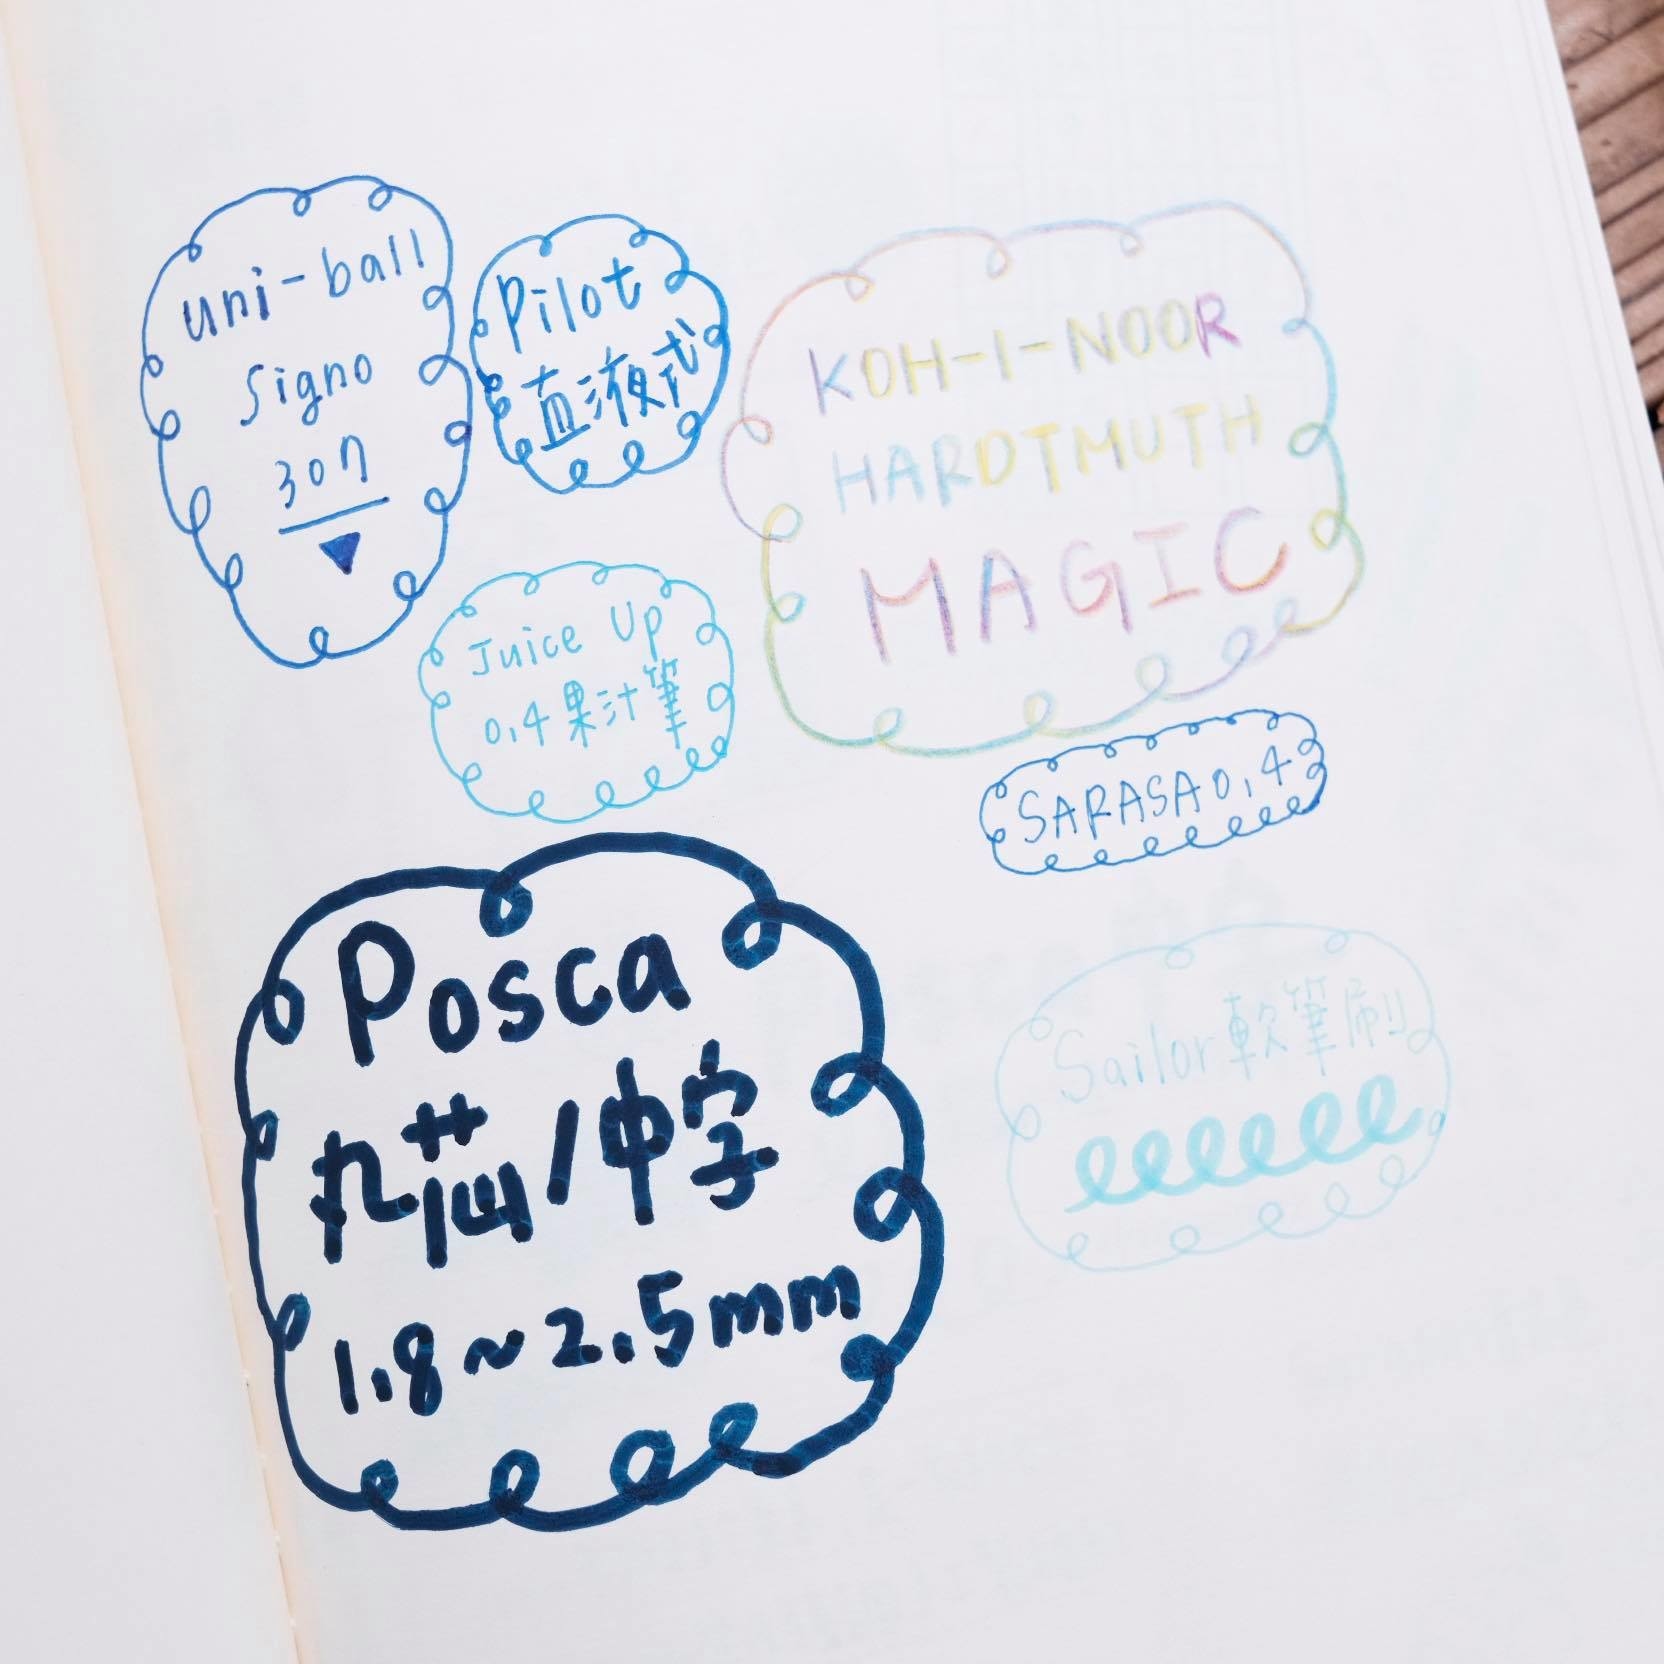 uni-ball
Signo
307
Pilot
直液式
KOH-I-NOOR
HARDTMUTH
MAGIC
Juice Up
0.4果汁筆
SARASA0.4
Posca
丸芯/中字
1.8~2.5mm
Sailor軟筆刷